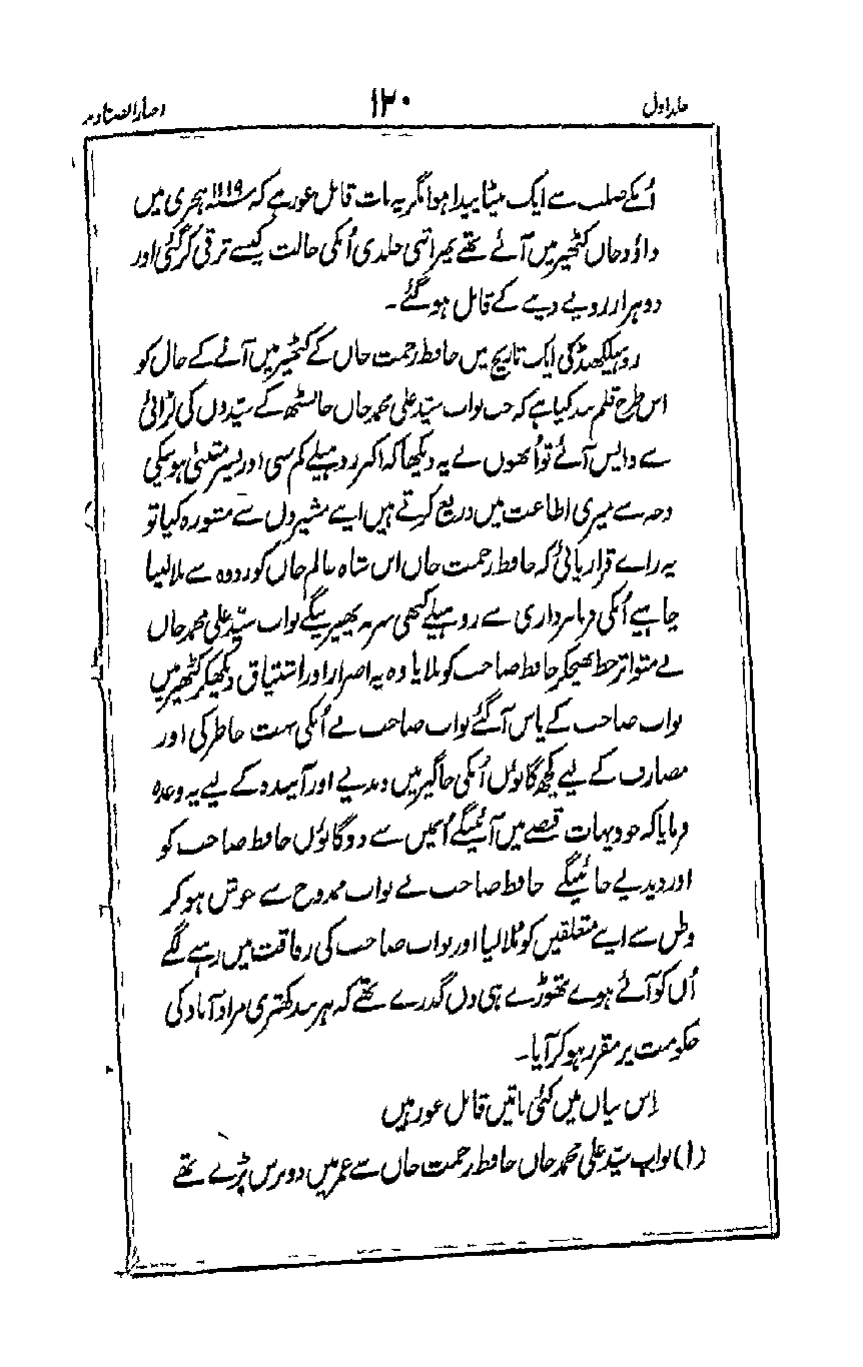 جلد اول ۱۲۰ اخبار الصنادید
اُنکے صلب سے ایک بیٹا پیدا ہوا مگر یہ بات قابل غور ہے کہ ۱۱۱۹ ہجری میں
داؤد خاں کٹھیر میں آئے تھے پھر اتنی جلدی اُنکی حالت کیسے ترقی کر گئی اور
دو ہزار روپے دینے کے قابل ہو گئے۔
روہیلکھنڈ کی ایک تاریخ میں حافظ رحمت خاں کے کٹھیر میں آنے کے حال کو
اس طرح قلم بند کیا ہے کہ جب نواب سیّد علی محمد خاں جانسٹھ کے سیّدوں کی لڑائی
سے واپس آئے تو اُنھوں نے یہ دیکھا کہ اکثر روہیلے کم سنی اور پسر متبنیٰ ہونیکی
وجہ سے میری اطاعت میں دریغ کرتے ہیں اپنے مشیروں سے مشورہ کیا تو
یہ رائے قرار پائی کہ حافظ رحمت خاں ابن شاہ عالم خاں کو روہ سے بلا لینا
چاہیے اُنکی فرمانبرداری سے روہیلے کبھی سر نہ پھیرینگے نواب سیّد علی محمد خاں
نے متواتر خط بھیجکر حافظ صاحب کو بلایا وہ یہ اصرار اور اشتیاق دیکھکر کٹھیر میں
نواب صاحب کے پاس آگئے نواب صاحب نے اُنکی بہت خاطر کی اور
مصارف کے لیے کچھ گانوں اُنکی جاگیر میں دیدیے اور آیندہ کے لیے یہ وعدہ
فرمایا کہ جو دیہات قبضے میں آئینگے اُنمیں سے دو گانوں حافظ صاحب کو
اور دیدیے جائینگے حافظ صاحب نے نواب ممدوح سے خوش ہو کر
وطن سے اپنے متعلقین کو بُلا لیا اور نواب صاحب کی رفاقت میں رہنے لگے
اُن کو آئے ہوے تھوڑے ہی دن گذرے تھے کہ ہرنند کھتری مراد آباد کی
حکومت پر مقرر ہو کر آیا۔
اِس بیان میں کئی باتیں قابل غور ہیں
(۱) نواب سیّد علی محمد خاں حافظ رحمت خاں سے عمر میں دو برس بڑے تھے